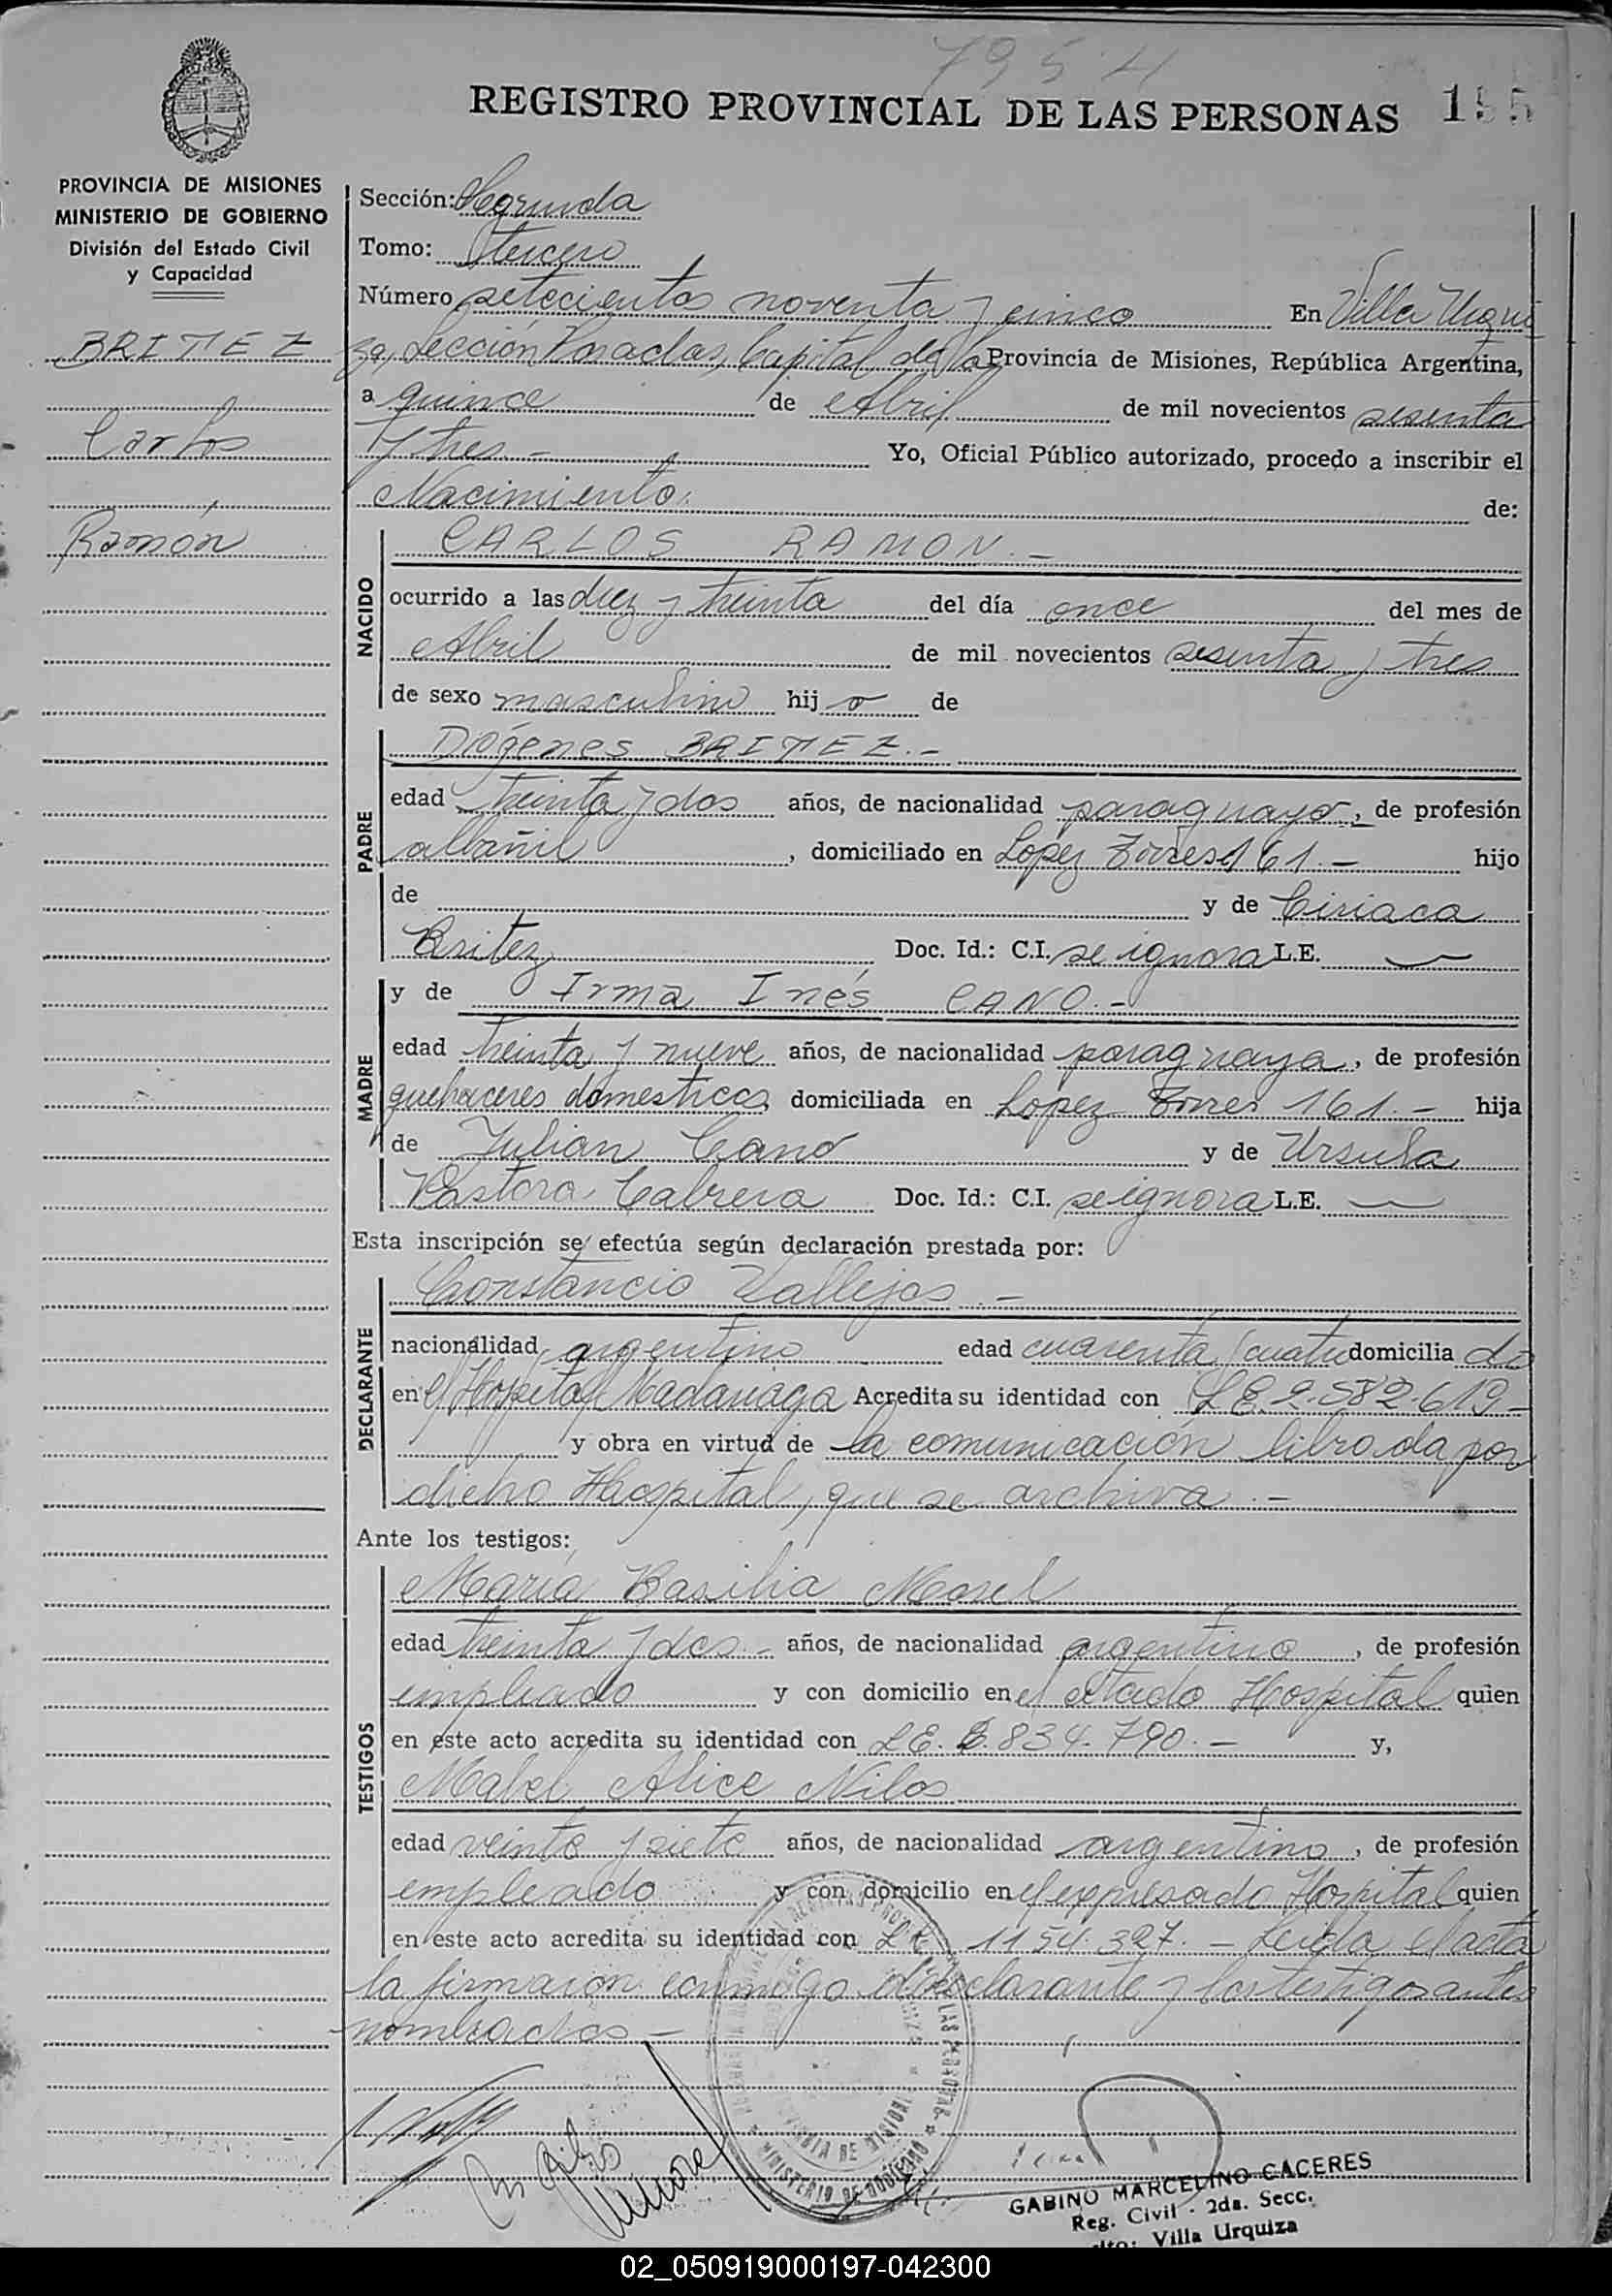 7954
REGISTRO PROVINCIAL DE LAS PERSONAS 195
PROVINCIA DE MISIONES
MINISTERIO DE GOBIERNO
División del Estado Civil
y Capacidad
BRITEZ
Carlos
Ramón
Sección: Segunda
Tomo: tercero
Número setecientos noventa y cinco En Villa Urqui
za, Sección Posadas, Capital de la Provincia de Misiones, República Argentina,
a quince de Abril de mil novecientos sesenta
y tres.- Yo, Oficial Público autorizado, procedo a inscribir el
Nacimiento. de:
NACIDO
CARLOS RAMON.-
ocurrido a las diez y treinta del día once del mes de
Abril de mil novecientos sesenta y tres
de sexo masculino hij o de
PADRE
Diógenes BRITEZ.-
edad treinta y dos años, de nacionalidad paraguayo, de profesión
albañil, domiciliado en Lopez Torres 161.- hijo
de y de Ciriaca
Britez Doc. Id.: C.I. se ignora L.E. —
MADRE
y de Irma Inés CANO.-
edad treinta y nueve años, de nacionalidad paraguaya, de profesión
quehaceres domesticos domiciliada en Lopez Torres 161.- hija
de Julian Cano y de Ursula
Pastora Cabrera Doc. Id.: C.I. se ignora L.E. —
Esta inscripción se efectúa según declaración prestada por:
DECLARANTE
Constancio Vallejos.-
nacionalidad argentino edad cuarenta y cuatro domicilia do
en el Hospital Madariaga Acredita su identidad con L.E. 2.582.619-
y obra en virtud de la comunicación librada por
dicho Hospital, que se archiva.-
Ante los testigos:
TESTIGOS
María Basilia Morel
edad treinta y dos.- años, de nacionalidad argentino, de profesión
empleado y con domicilio en el citado Hospital quien
en este acto acredita su identidad con L.E. 6.834.790.- y,
Mabel Alice Nilos
edad veinte y siete años, de nacionalidad argentino, de profesión
empleado y con domicilio en el expresado Hospital quien
en este acto acredita su identidad con L.E. 1154.327.- Leída el acta
la firmaron conmigo el declarante y los testigos antes
nombrados.-
GABINO MARCELINO CACERES
Reg. Civil - 2da. Secc.
dto: Villa Urquiza
02_050919000197-042300